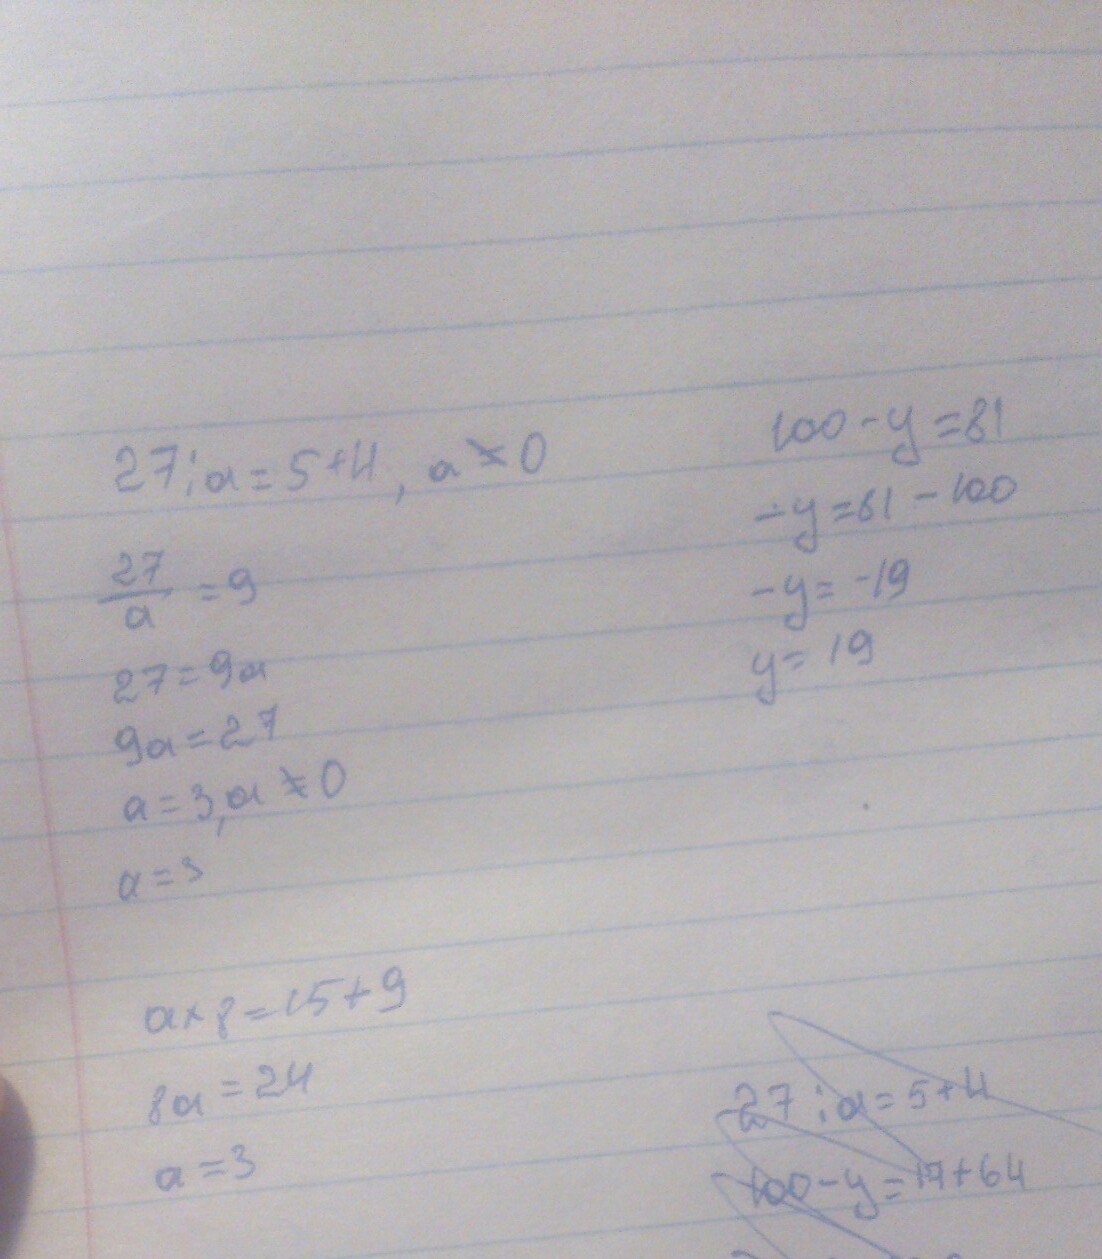 27:a=5+4, a≠0
27/a = 9
27=9a
9a=27
a=3, a≠0
a=3
100-y=81
-y=81-100
-y=-19
y=19
a×8=15+9
8a=24
a=3
27:a=5+4
100-y=17+64